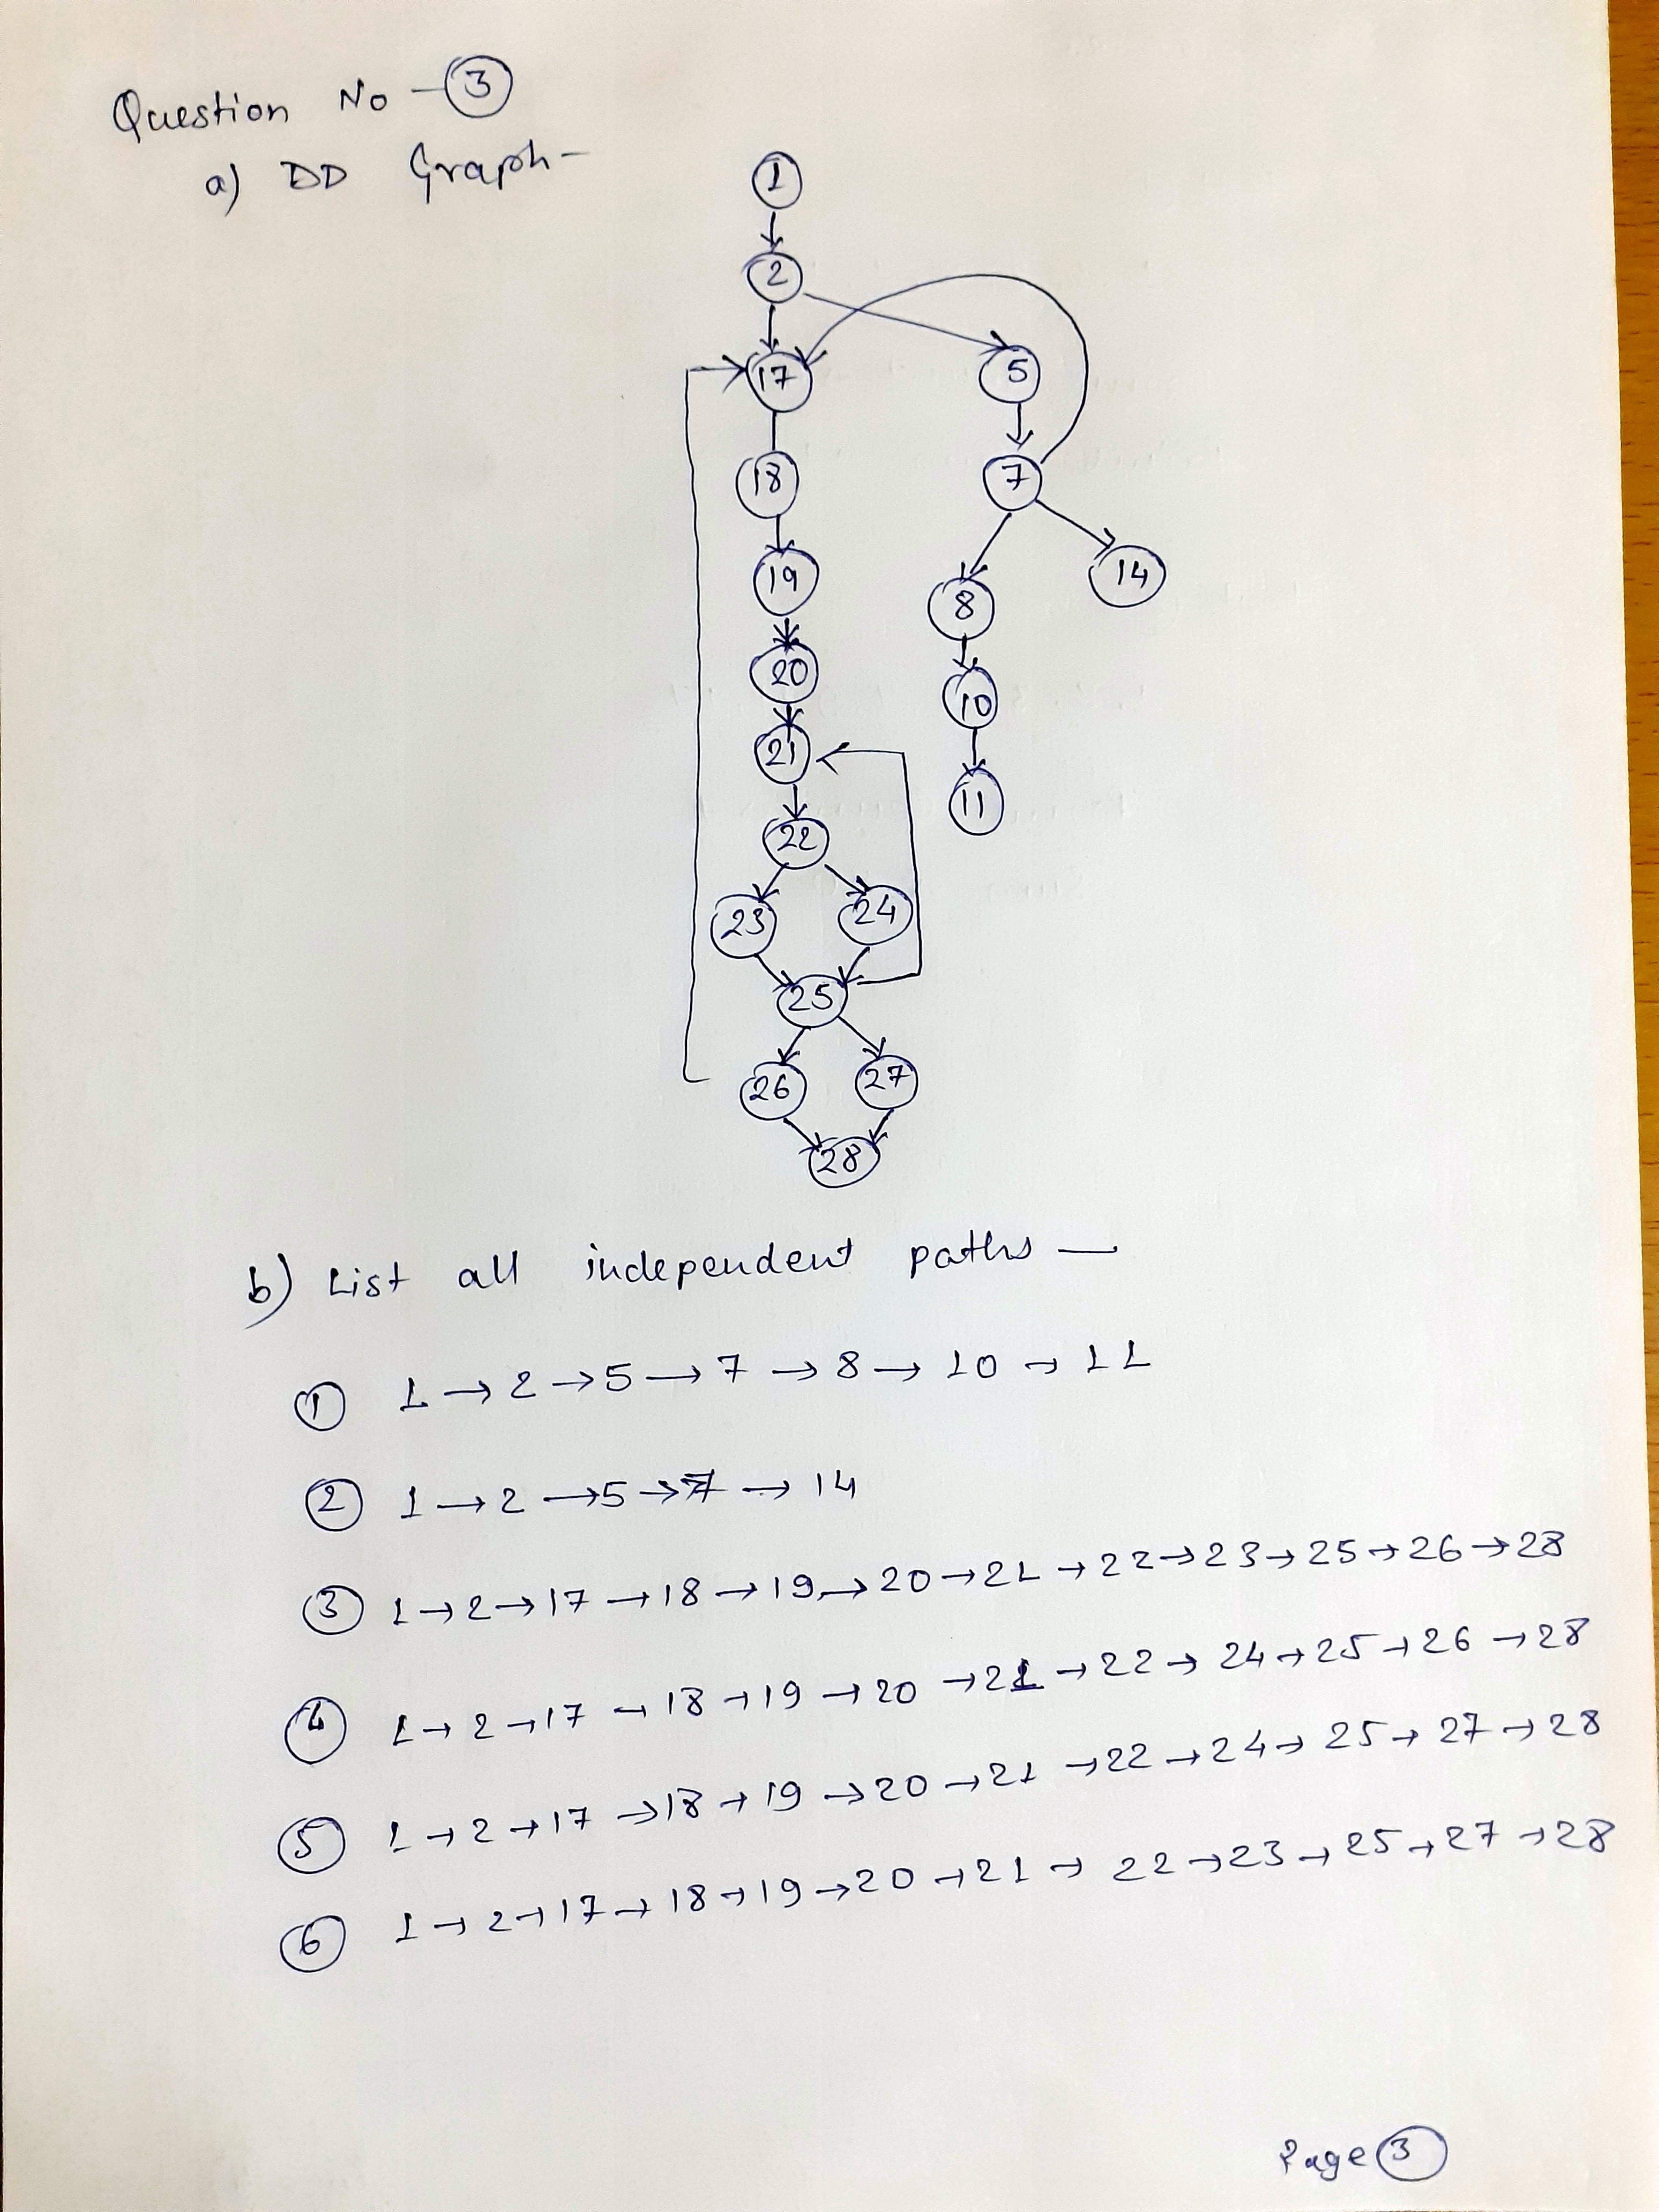 Question No - 3
a) DD Graph-
1
2
17
5
18
7
19
8
14
20
10
21
11
22
23
24
25
26
27
28
b) List all independent paths —
1 1 → 2 → 5 → 7 → 8 → 10 → 11
2 1 → 2 → 5 → 7 → 14
3 1 → 2 → 17 → 18 → 19 → 20 → 21 → 22 → 23 → 25 → 26 → 28
4 1 → 2 → 17 → 18 → 19 → 20 → 21 → 22 → 24 → 25 → 26 → 28
5 1 → 2 → 17 → 18 → 19 → 20 → 21 → 22 → 24 → 25 → 27 → 28
6 1 → 2 → 17 → 18 → 19 → 20 → 21 → 22 → 23 → 25 → 27 → 28
Page 3